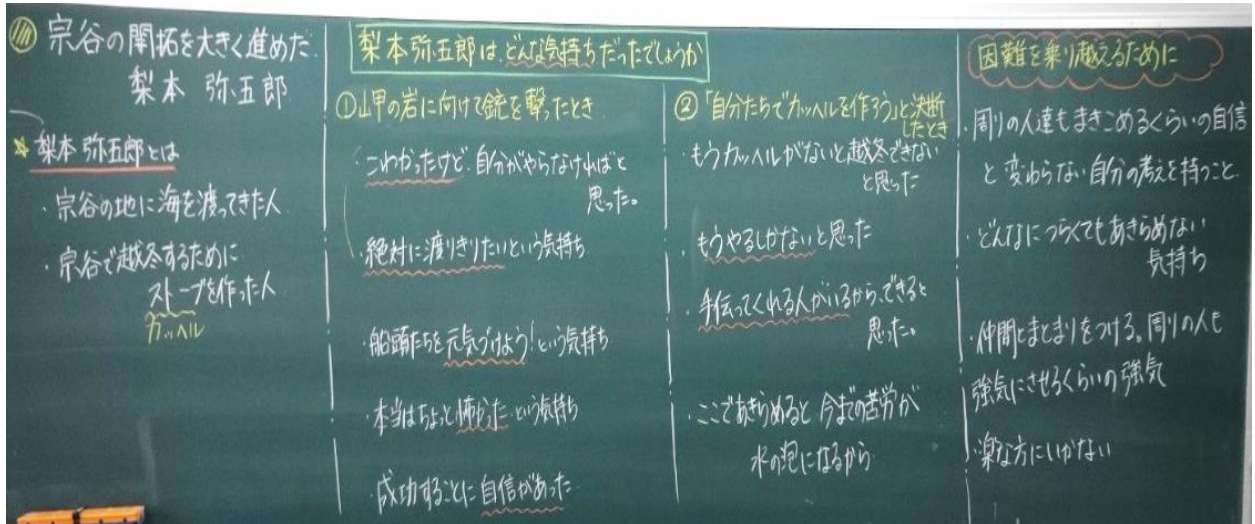 宗谷の開拓を大きく進めた
梨本 弥五郎
梨本弥五郎とは
・宗谷の地に海を渡ってきた人
・宗谷で越冬するために
ストーブを作った人
カッヘル
梨本弥五郎は、どんな気持ちだったでしょうか
①山甲の岩に向けて銃を撃ったとき
・こわかったけど、自分がやらなければと
思った。
・絶対に渡りきりたいという気持ち
・船頭たちを元気づけよう!という気持ち
・本当はちょっと怖かったという気持ち
・成功することに自信があった
②「自分たちでカッヘルを作ろう」と決断
したとき
・もうカッヘルがないと越冬できない
と思った
・もうやるしかないと思った
・手伝ってくれる人がいるから、できると
思った。
・ここであきらめると今までの苦労が
水の泡になるから
困難を乗り越えるために
・周りの人達もまきこめるくらいの自信
と変わらない自分の考えを持つこと
・どんなにつらくてもあきらめない
気持ち
・仲間とまとまりをつける。周りの人も
強気にさせるくらいの強気
・楽な方にいかない